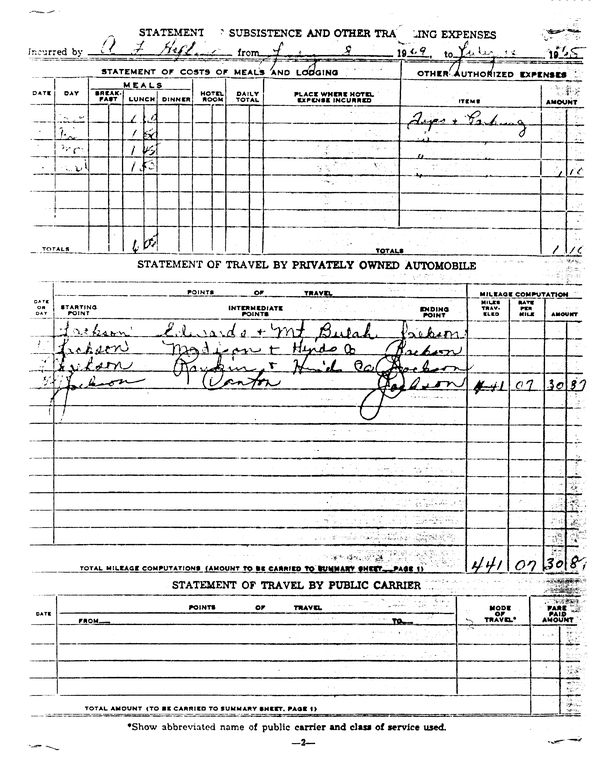 STATEMENT SUBSISTENCE AND OTHER TRA LING EXPENSES
Incurred by from 19 to July 19
STATEMENT OF COSTS OF MEALS AND LODGING OTHER AUTHORIZED EXPENSES
DATE DAY MEALS HOTEL ROOM DAILY TOTAL PLACE WHERE HOTEL EXPENSE INCURRED ITEMS AMOUNT
BREAK-FAST LUNCH DINNER
Parking
" "
1 45 " "
1 10
TOTALS TOTALS 1 10
STATEMENT OF TRAVEL BY PRIVATELY OWNED AUTOMOBILE
POINTS OF TRAVEL MILEAGE COMPUTATION
DATE OR DAY STARTING POINT INTERMEDIATE POINTS ENDING POINT MILES TRAV-ELED RATE PER MILE AMOUNT
Jackson Edwards + Mt Beulah Jackson
Jackson Madison + Hynds Co Jackson
Jackson Rankin + Co Jackson
Jackson Canton Jackson 441 07 30 87
TOTAL MILEAGE COMPUTATIONS (AMOUNT TO BE CARRIED TO SUMMARY SHEET, PAGE 1) 441 07 30 8
STATEMENT OF TRAVEL BY PUBLIC CARRIER
DATE POINTS OF TRAVEL MODE OF TRAVEL* FARE PAID AMOUNT
FROM TO
TOTAL AMOUNT (TO BE CARRIED TO SUMMARY SHEET, PAGE 1)
*Show abbreviated name of public carrier and class of service used.
—2—